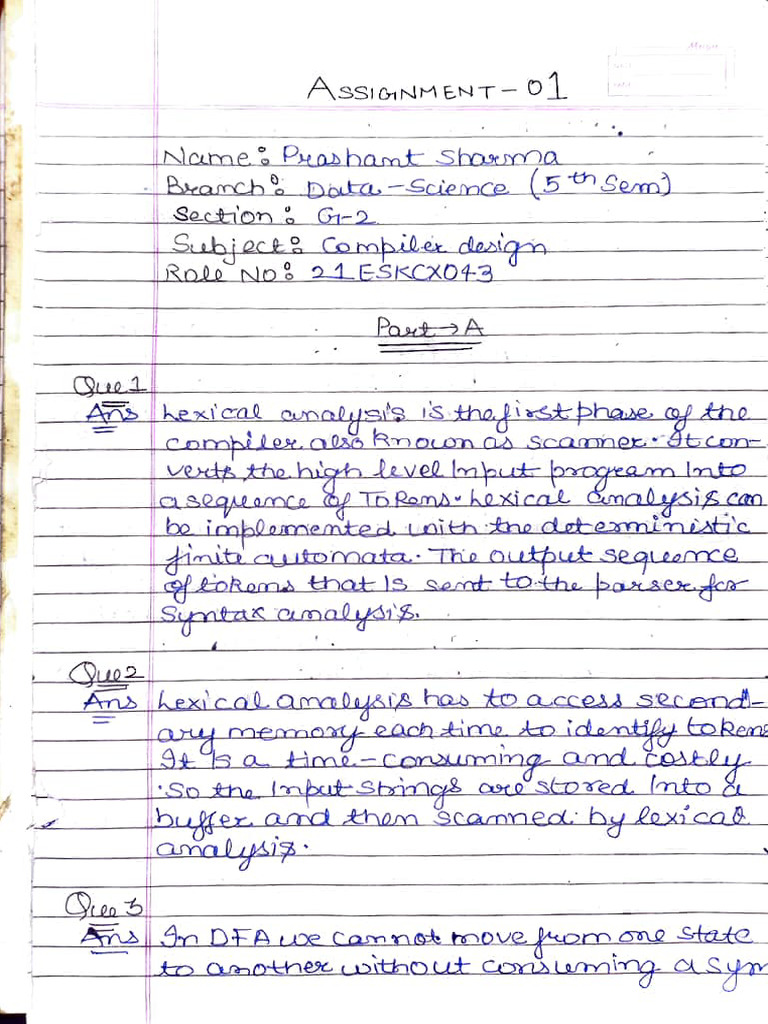 Margin
ASSIGNMENT-01
Name: Prashant Sharma
Branch: Data-Science (5th Sem)
Section: G-2
Subject: Compiler design
Role No: 21ESKCX043
Part→A
Que 1
Ans Lexical analysis is the first phase of the
compiler also known as scanner. It con-
verts the high level Input program Into
a sequence of Tokens. Lexical analysis can
be implemented with the deterministic
finite automata. The output sequence
of tokens that is sent to the parser for
syntax analysis.
Que 2
Ans Lexical analysis has to access second-
ary memory each time to identify tokens
It Is a time-consuming and costly
.So the Input strings are stored Into a
buffer and then scanned by lexical
analysis.
Que 3
Ans In DFA we cannot move from one state
to another without consuming a sym